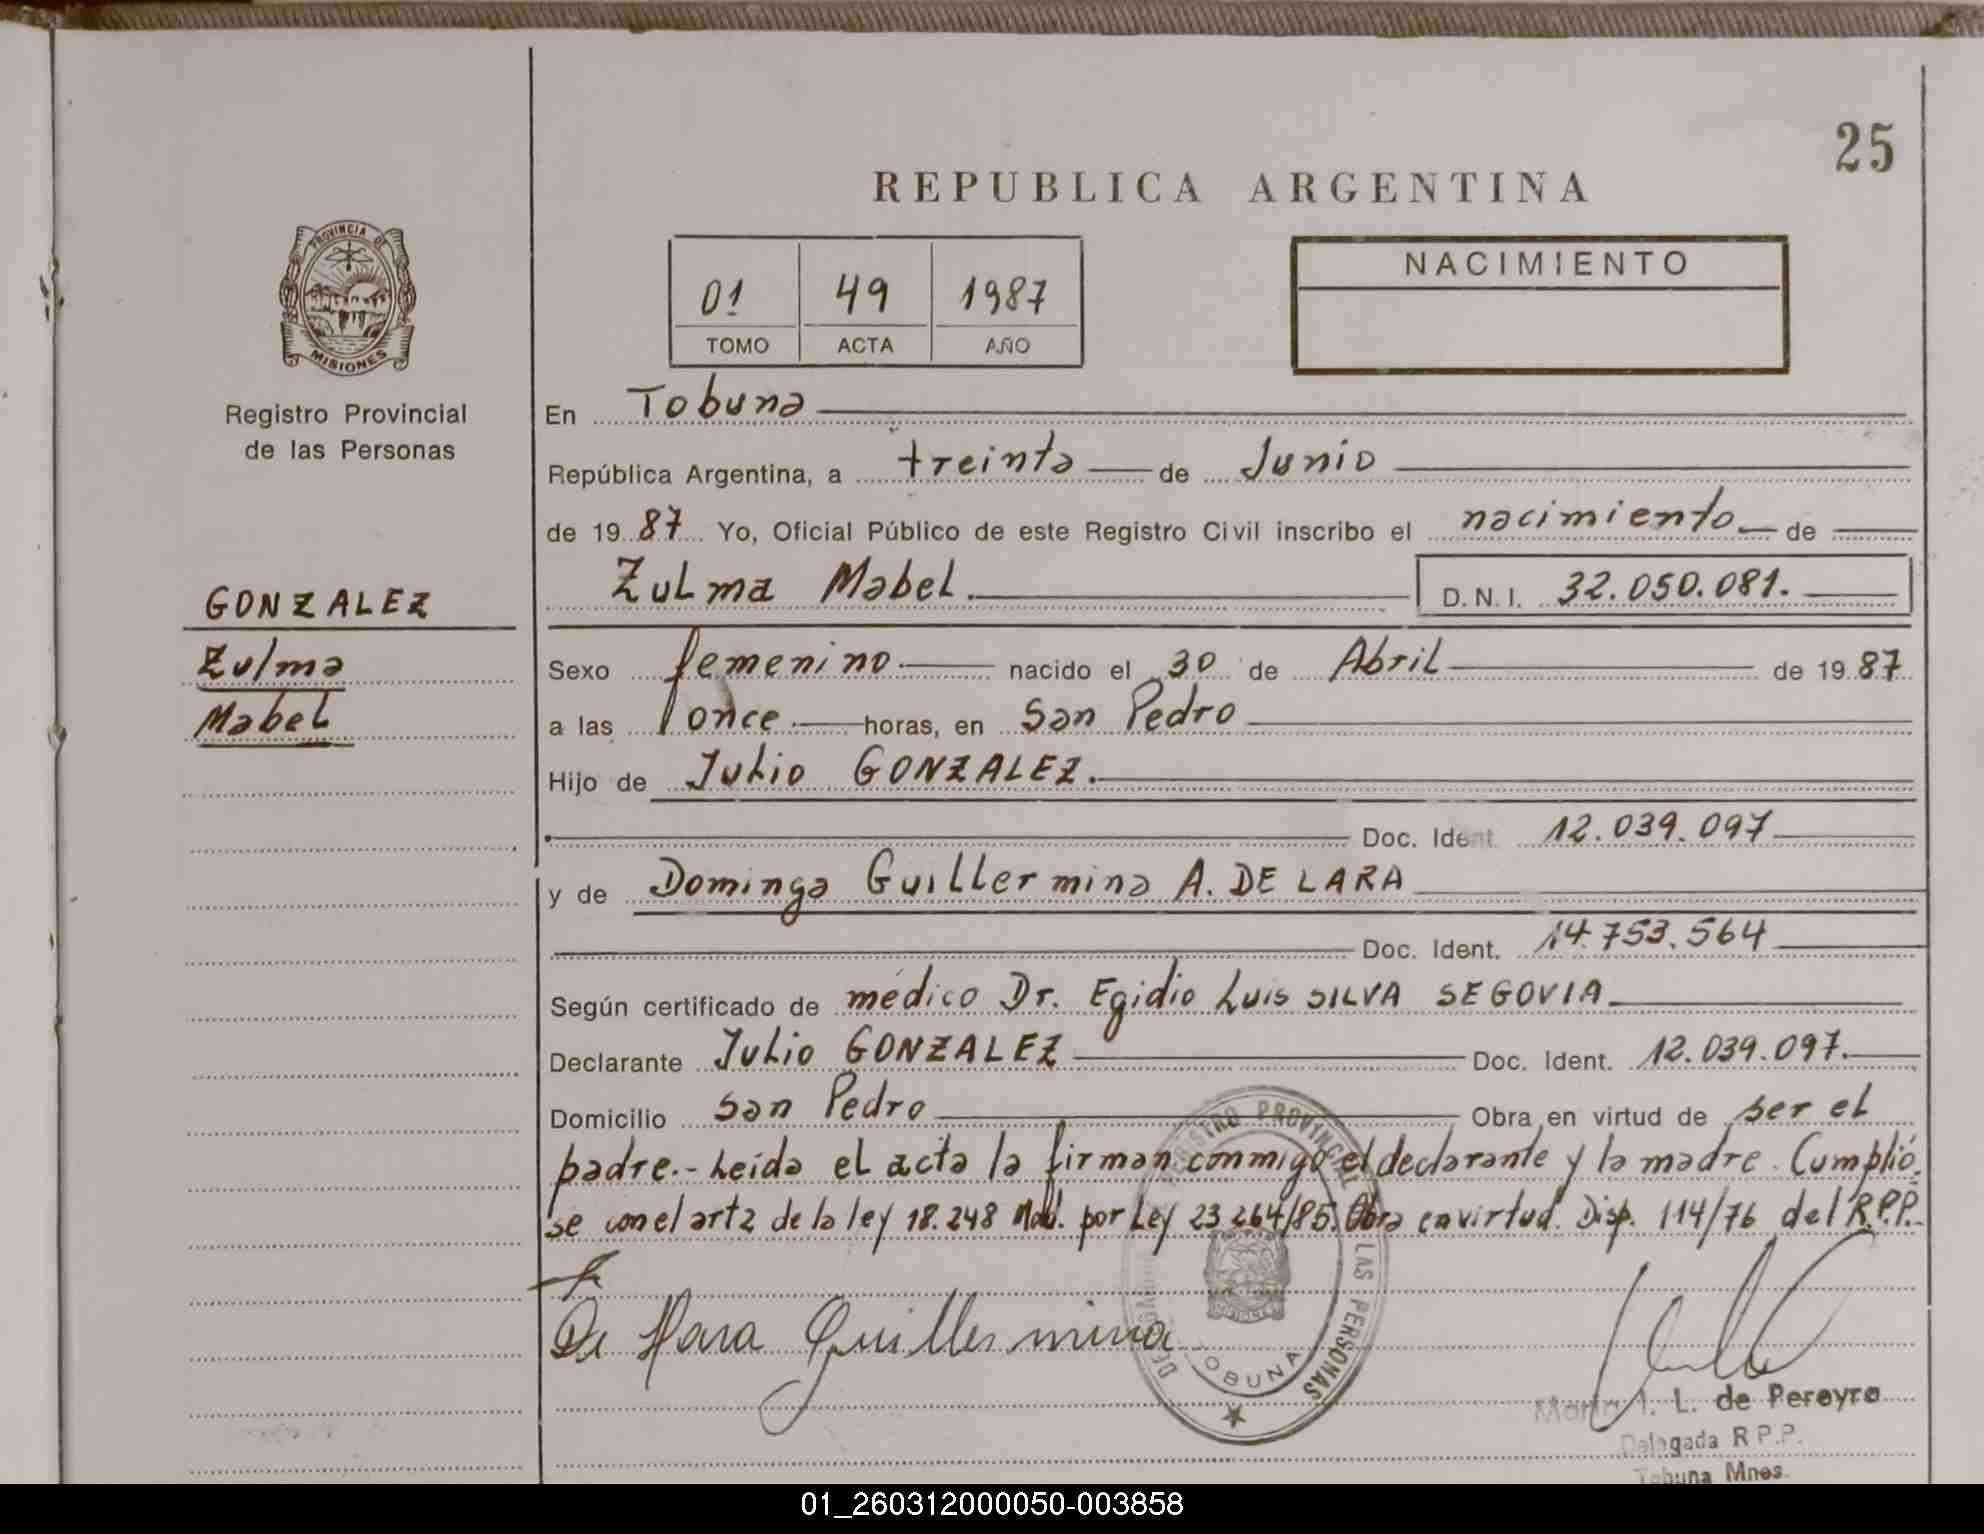 25
REPUBLICA ARGENTINA
PROVINCIA DE
MISIONES
Registro Provincial
de las Personas
01 49 1987
TOMO ACTA AÑO
NACIMIENTO
En Tobuna
República Argentina, a treinta de Junio
de 1987 Yo, Oficial Público de este Registro Civil inscribo el nacimiento de
Zulma Mabel. D.N.I. 32.050.081.
GONZALEZ
Zulma
Mabel
Sexo femenino nacido el 30 de Abril de 1987
a las once horas, en San Pedro
Hijo de Julio GONZALEZ.
Doc. Ident. 12.039.097
y de Dominga Guillermina A. DE LARA
Doc. Ident. 14.753.564
Según certificado de médico Dr. Egidio Luis SILVA SEGOVIA
Declarante Julio GONZALEZ Doc. Ident. 12.039.097.
Domicilio San Pedro Obra en virtud de ser el
padre.- Leída el acta la firman conmigo el declarante y la madre. Cumplió.
se con el art 2 de la ley 18.248 Mod. por Ley 23.264/85. Obra en virtud. Disp. 114/76 del R.P.P.-
De Hara Guillermina
REGISTRO PROVINCIAL DE LAS PERSONAS
MISIONES
TOBUNA
I. L. de Pereyra
Delegada R.P.P.
Tobuna Mnes.
01_260312000050-003858